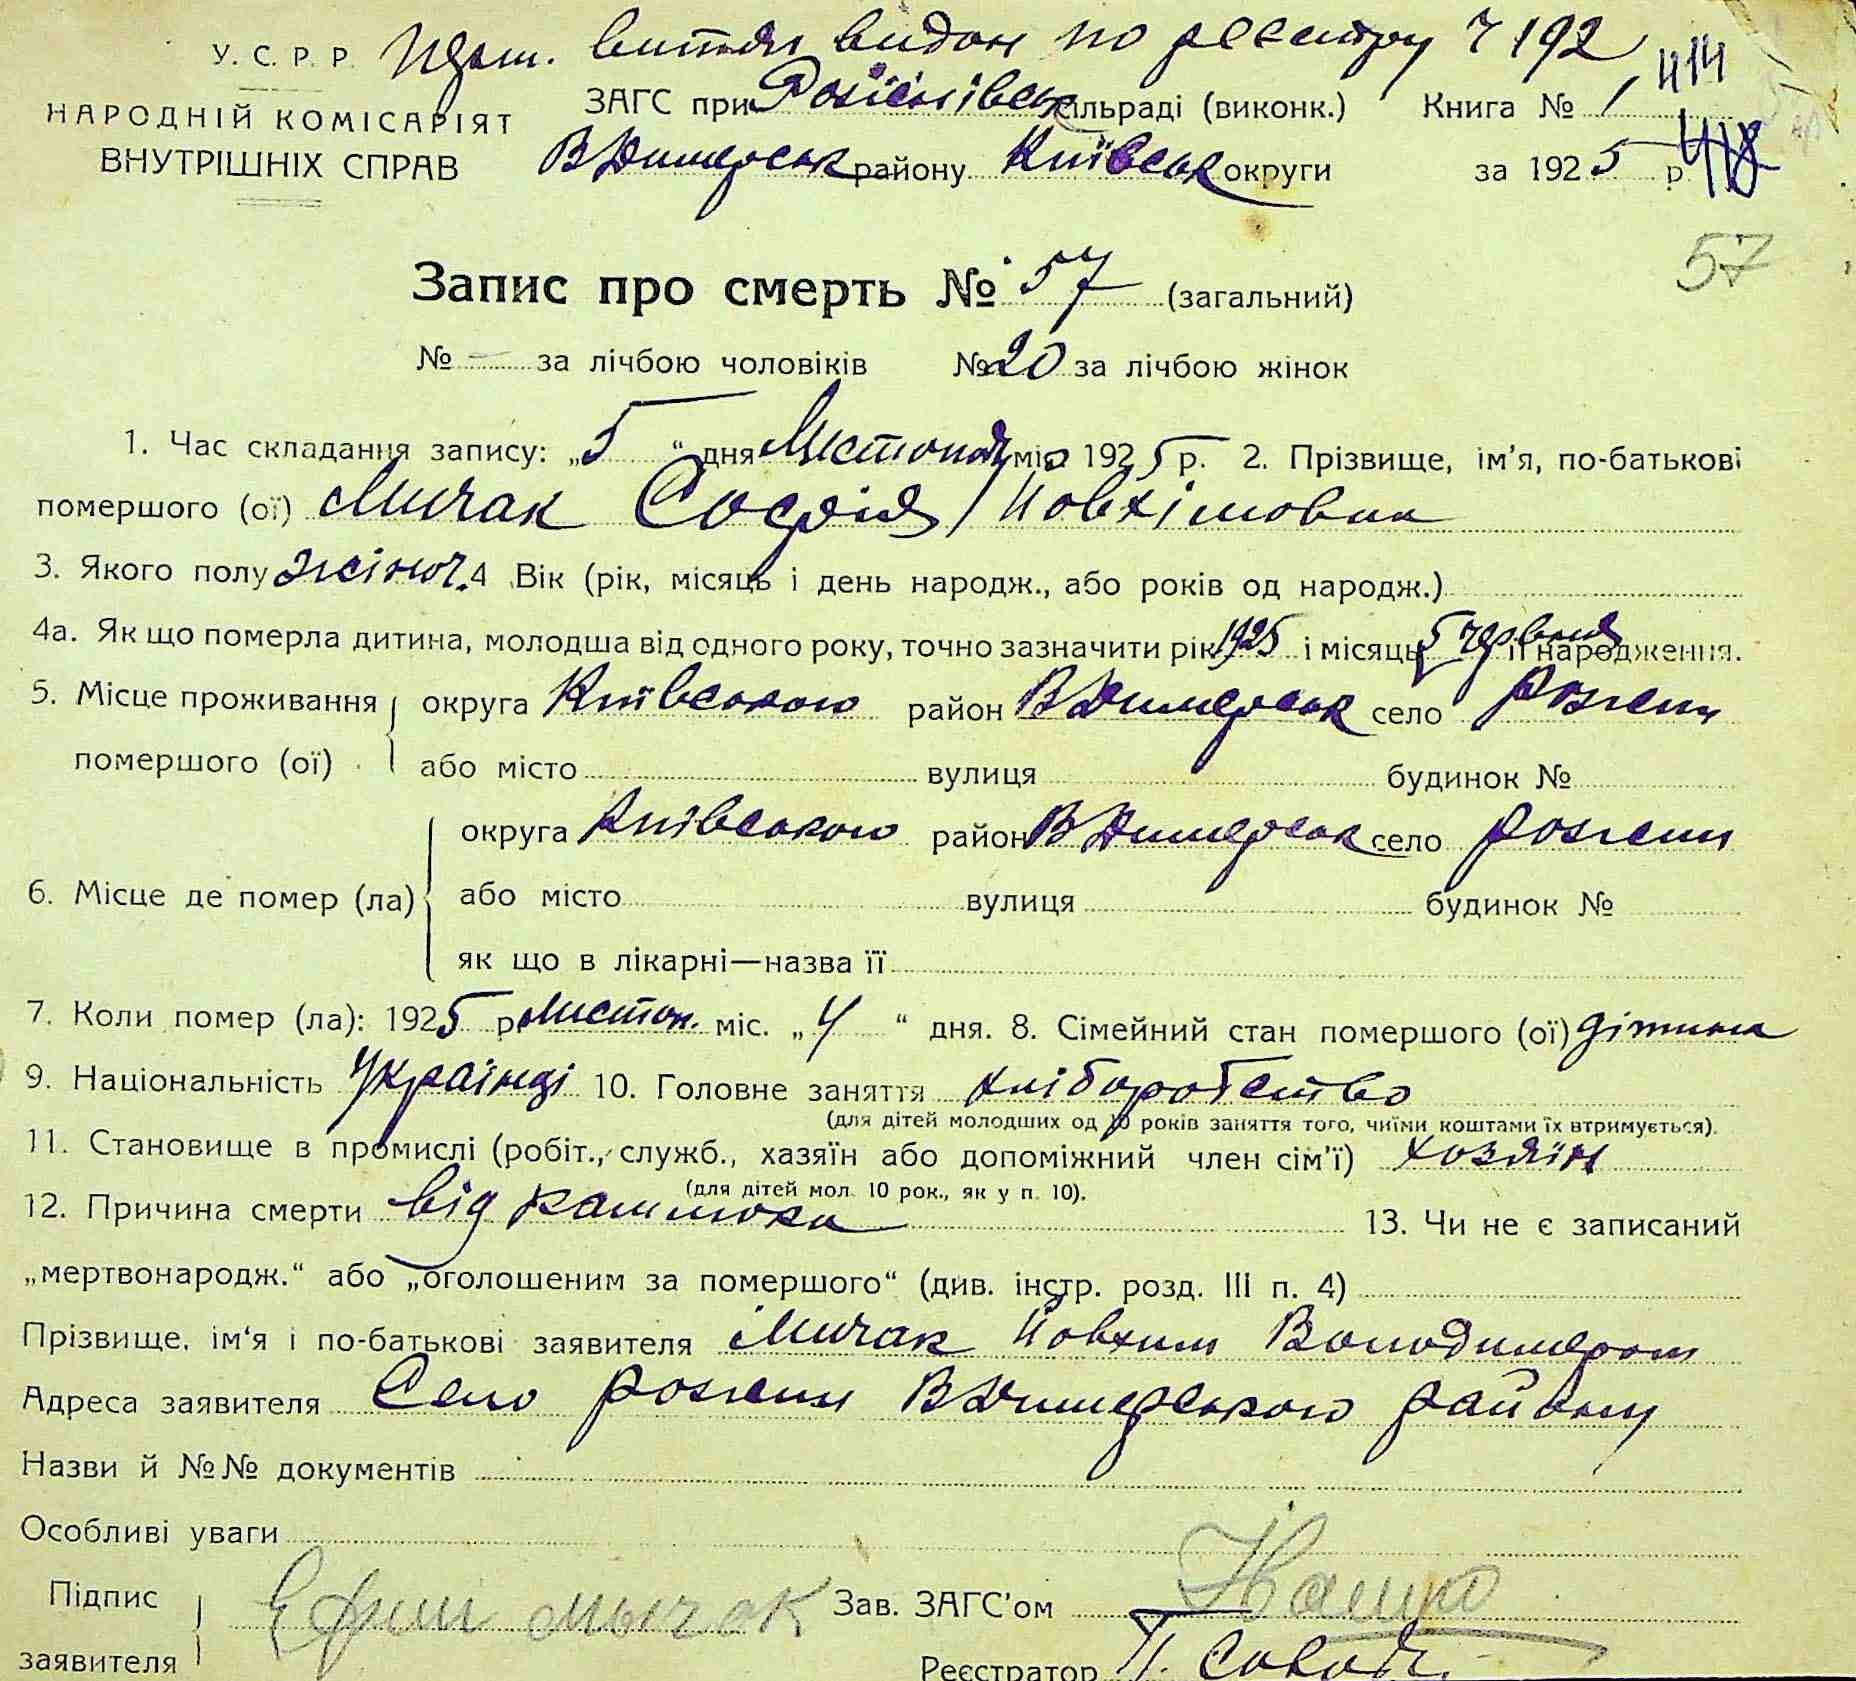 У. С. Р. Р. витяг видан по реєстру ч 192
НАРОДНІЙ КОМІСАРІЯТ ЗАГС при Розієнівськ сільраді (виконк.) Книга № 1 414
ВНУТРІШНІХ СПРАВ ВДимерськ району Київськ округи за 1925 р. 418
57
Запис про смерть № 57 (загальний)
№ — за лічбою чоловіків № 20 за лічбою жінок
1. Час складання запису: „5“ дня Листопад міс. 1925 р. 2. Прізвище, ім'я, по-батькові
помершого (ої) Мичак Софія Йовхімовна
3. Якого полу жіноч. 4 Вік (рік, місяць і день народж., або років од народж.)
4а. Як що померла дитина, молодша від одного року, точно зазначити рік 1925 і місяць 5 червня її народження.
5. Місце проживання округа Київського район ВДимерськ село
помершого (ої) або місто вулиця будинок №
округа Київського район ВДимерськ село
6. Місце де помер (ла) або місто вулиця будинок №
як що в лікарні—назва її
7. Коли помер (ла): 1925 р. Листоп. міс. „4“ дня. 8. Сімейний стан помершого (ої) дітина
9. Національність Українці 10. Головне заняття хліборобство
(для дітей молодших од 10 років заняття того, чиїми коштами їх втримується).
11. Становище в промислі (робіт., служб., хазяїн або допоміжний член сім'ї) хозяїн
(для дітей мол. 10 рок., як у п. 10).
12. Причина смерти від кашлюка 13. Чи не є записаний
„мертвонародж.“ або „оголошеним за помершого“ (див. інстр. розд. III п. 4)
Прізвище, ім'я і по-батькові заявителя Мичак Йовхим Володимеров
Адреса заявителя Село ВДимерського району
Назви й №№ документів
Особливі уваги
Підпис Ефим мычак Зав. ЗАГС'ом
заявителя Реєстратор